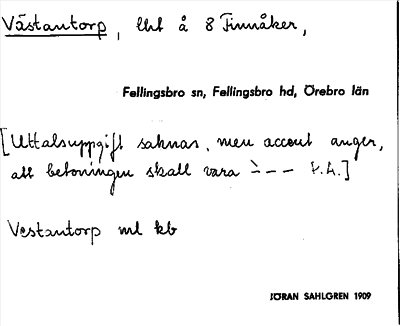 Västantorp, lht å 8 Finnåker,
Fellingsbro sn, Fellingsbro hd, Örebro län
[Uttalsuppgift saknas, men accent anger,
att betoningen skall vara `---]
Vestantorp ml kb
JÖRAN SAHLGREN 1909